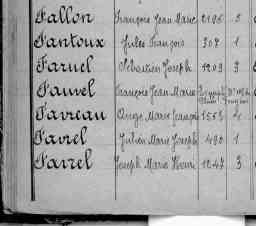 Fallon François Jean Marie 2195 5
Fantoux Jules François 307 1
Faruel Sébastien Joseph 1209 3
Fauvel François Jean Marie
Favreau Ange Marie François 1553 4
Favrel Julien Marie Joseph 490 1
Favrel Joseph Marie Henri 1247 3